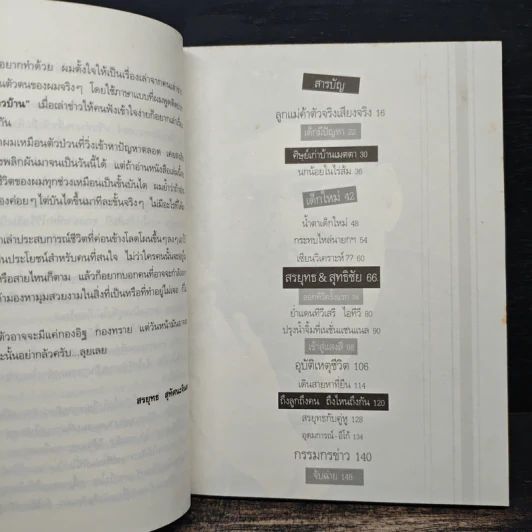 อยากทำด้วย ผมตั้งใจให้เป็นเรื่องเล่าจากคนเล่าข่าว
ตัวตนของผมจริงๆ โดยใช้ภาษาแบบที่ผมพูด
วบ้าน" เมื่อเล่าข่าวให้คนฟังเข้าใจง่ายก็อยากเล่าเรื่อง
กัน
ผมเหมือนตัวป่วนที่วิ่งเข้าหาปัญหาตลอด
พลิกผันมาจนเป็นวันนี้ได้ แต่ถ้าอ่านหนังสือเล่มนี้
ชีวิตของผมทุกช่วงเหมือนเป็นขั้นบันได
ค่อยๆ ไต่บันไดขึ้นมาทีละขั้นจริงๆ
เล่าประสบการณ์ชีวิตที่ค่อนข้างโลดโผน
เป็นประโยชน์สำหรับคนที่สนใจ ไม่ว่าใครคนนั้นจะอยู่
หรือสายไหนก็ตาม แล้วก็อยากบอกคนที่อาจจะกำลัง
ามองหามุมสวยงามในสิ่งที่เป็นหรือที่ทำอยู่ไม่เจอ
ตัวอาจจะมีแค่กองอิฐ กองทราย แต่วันหน้ามัน
ะนั้นอย่ากลัวครับ...ลุยเลย
สรยุทธ สุทัศนะจินดา
สารบัญ
ลูกแม่ค้าตัวจริงเสียงจริง 16
เด็กมีปัญหา 22
ศิษย์เก่าบ้านเมตตา 30
นกน้อยในไร่ส้ม 36
เด็กใหม่ 42
น้ำตาเด็กใหม่ 48
กระทบไหล่นายกฯ 54
เซียนวิเคราะห์?? 60
สรยุทธ & สุทธิชัย 66
ออกทีวีครั้งแรก 74
ย่ำแดนทีวีเสรี ไอทีวี 80
ปรุงน้ำจิ้มที่เนชั่นแชนแนล 90
เข้าสู่แดงสี 98
อุบัติเหตุชีวิต 106
เดินสายหาที่ยืน 114
ถึงลูกถึงคน ถึงไหนถึงกัน 120
สรยุทธกับคู่หู 128
อุดมการณ์-อีโก้ 134
กรรมกรข่าว 140
จับฉ่าย 148